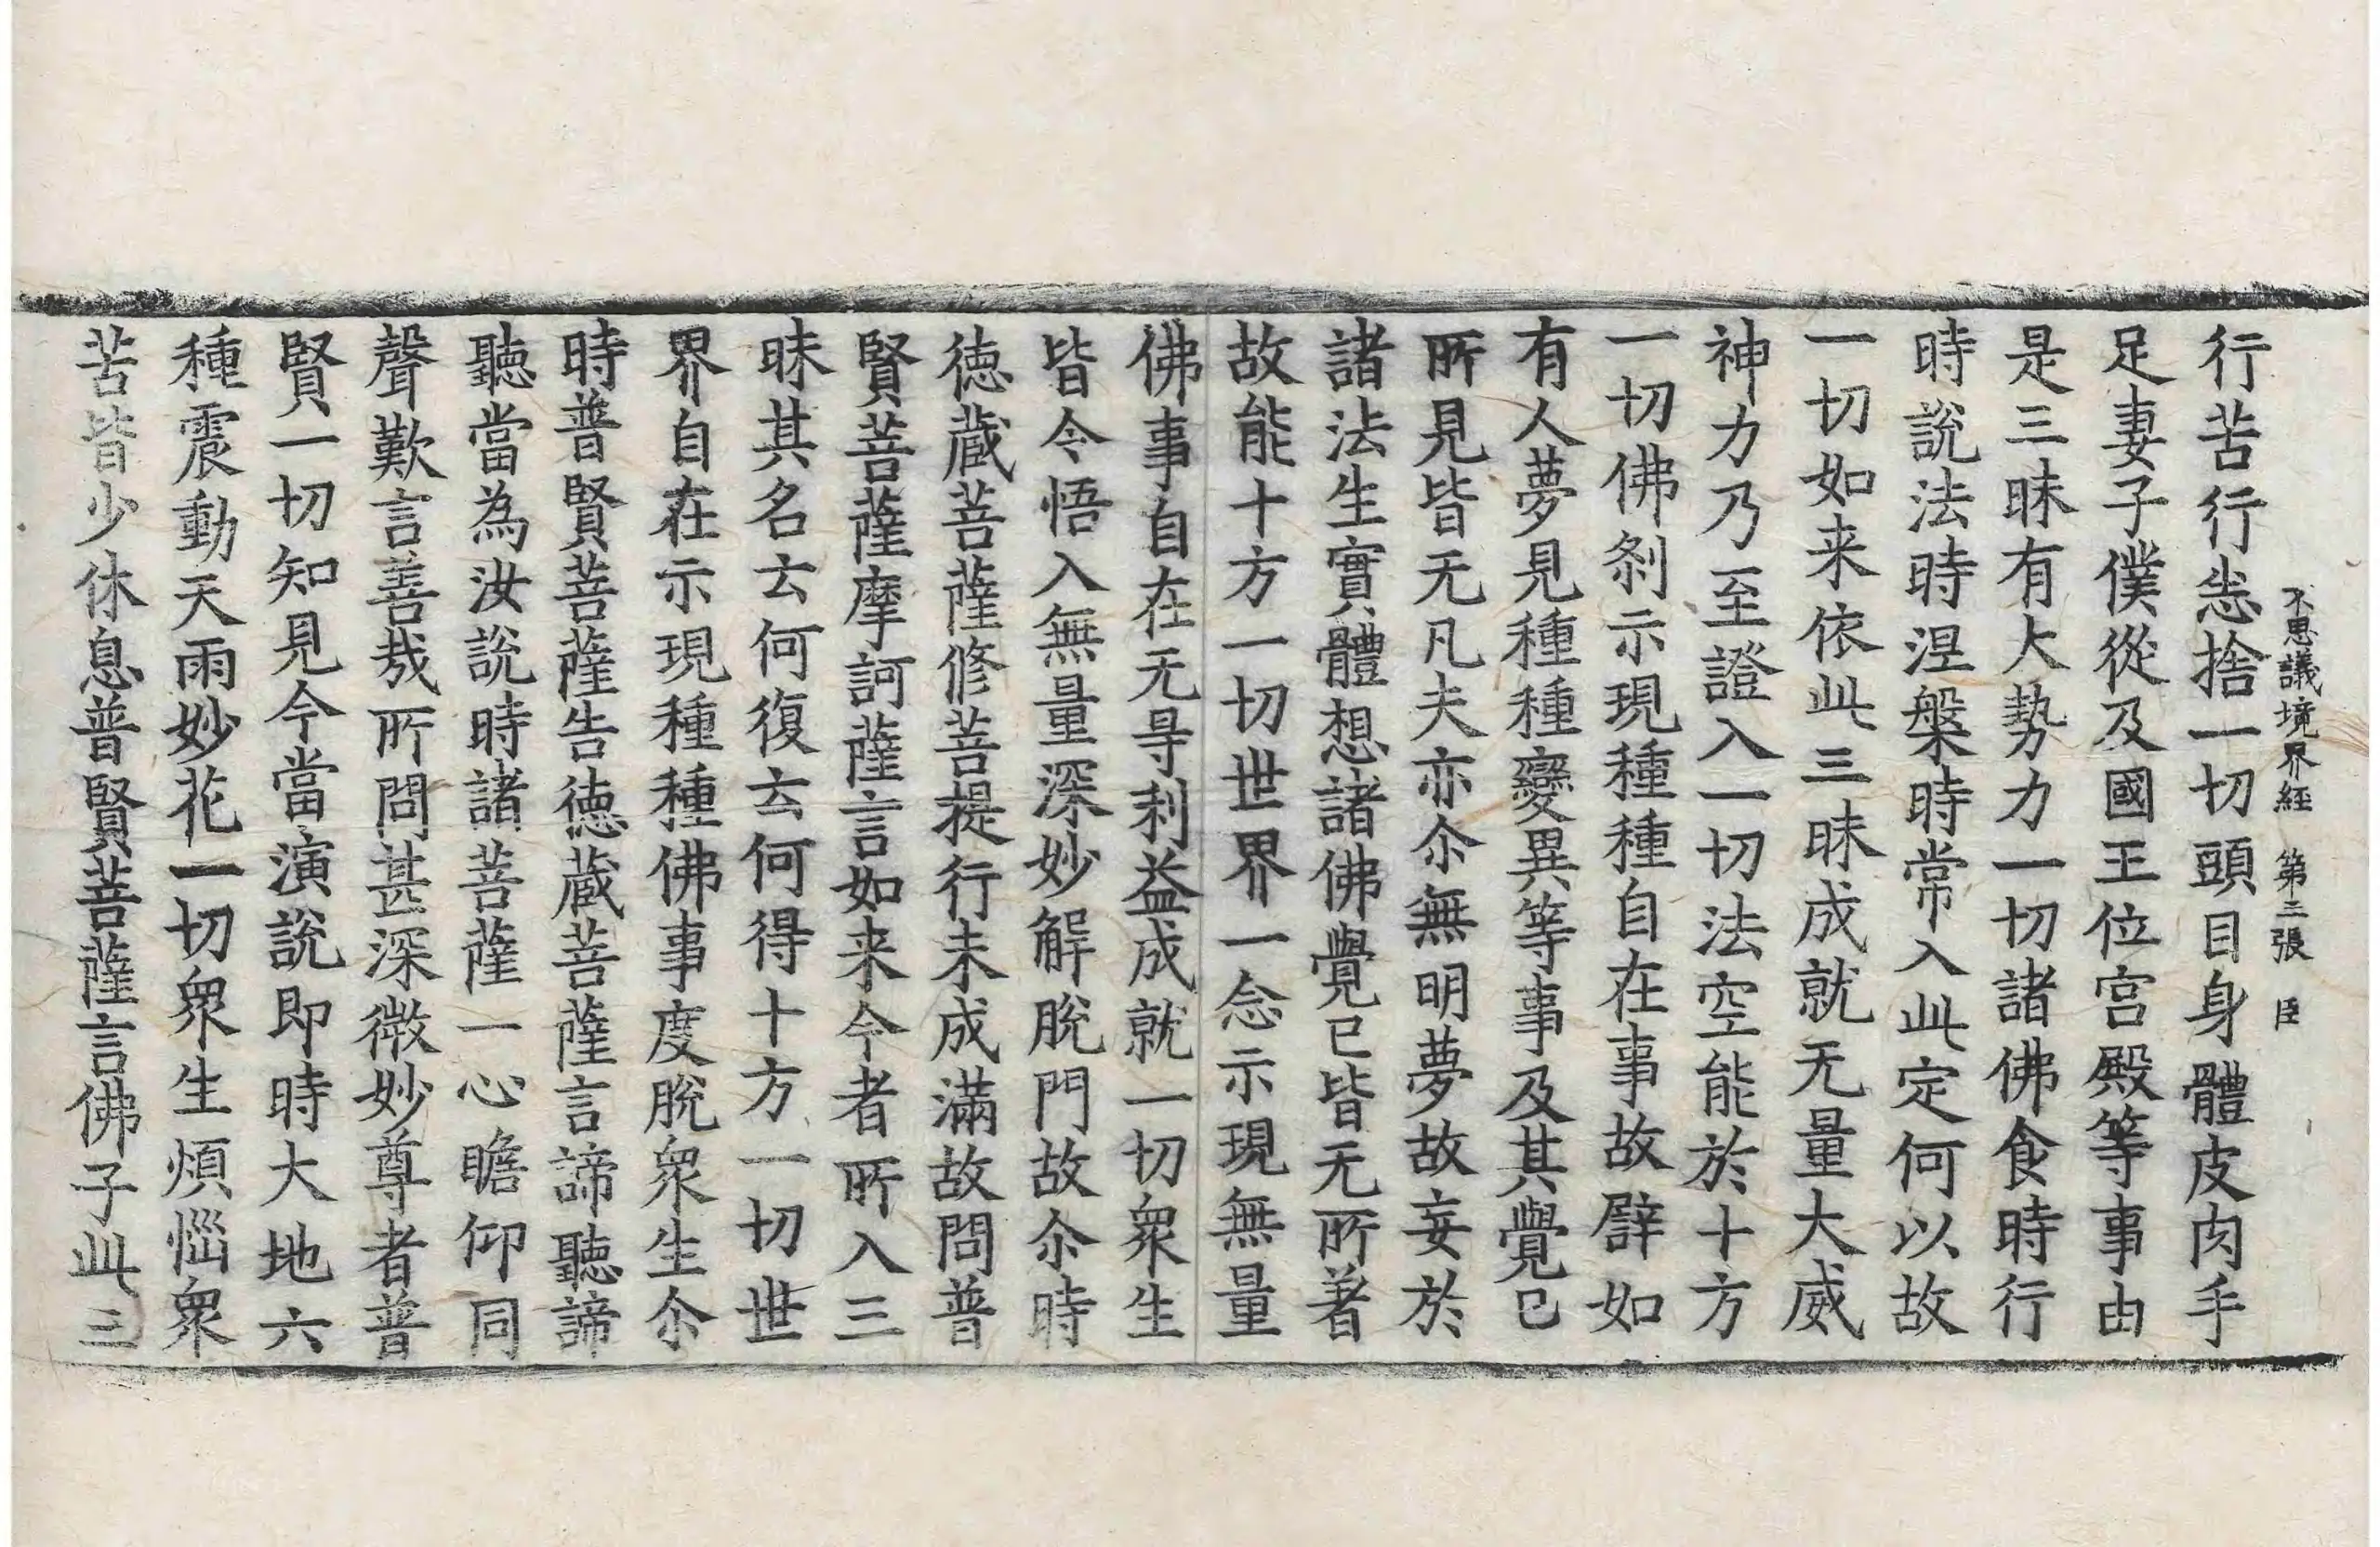 不思議境界経 第三張 臣
行苦行恙捨一切頭目身體皮肉手
足妻子僕從及國王位宮殿等事由
是三昧有大勢力一切諸佛食時行
時說法時涅槃時常入此定何以故
一切如来依此三昧成就无量大威
神力乃至證入一切法空能於十方
一切佛刹示現種種自在事故譬如
有人夢見種種變異等事及其覺已
所見皆无凡夫亦尒無明夢故妄於
諸法生實體想諸佛覺已皆无所著
故能十方一切世界一念示現無量
佛事自在无㝵利益成就一切衆生
皆令悟入無量深妙解脫門故尒時
德藏菩薩修菩提行未成滿故問普
賢菩薩摩訶薩言如来今者所入三
昧其名云何復云何得十方一切世
界自在示現種種佛事度脫衆生尒
時普賢菩薩告德藏菩薩言諦聽諦
聽當為汝說時諸菩薩一心瞻仰同
聲歎言善哉所問甚深微妙尊者普
賢一切知見今當演說即時大地六
種震動天雨妙花一切衆生煩惱衆
苦皆少休息普賢菩薩言佛子此三